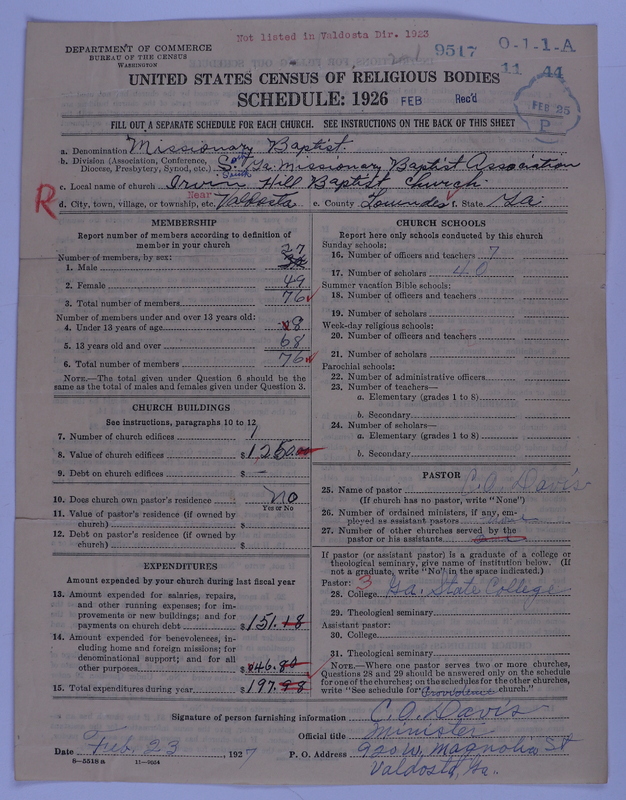 Not listed in Valdosta Dir. 1923
DEPARTMENT OF COMMERCE
BUREAU OF THE CENSUS
WASHINGTON
9517 O-1-1-A
11 44
UNITED STATES CENSUS OF RELIGIOUS BODIES
SCHEDULE: 1926 FEB Rec'd
FEB 25
P
FILL OUT A SEPARATE SCHEDULE FOR EACH CHURCH. SEE INSTRUCTIONS ON THE BACK OF THIS SHEET
a. Denomination Missionary Baptist
b. Division (Association, Conference, Diocese, Presbytery, Synod, etc.) So. Ga. Missionary Baptist Association
South
c. Local name of church Irvin Hill Baptist Church
R
Near
d. City, town, village, or township, etc. Valdosta e. County Lowndes f. State Ga
MEMBERSHIP
Report number of members according to definition of
member in your church
Number of members, by sex:
1. Male 27
2. Female 49
3. Total number of members 76
Number of members under and over 13 years old:
4. Under 13 years of age 8
5. 13 years old and over 68
6. Total number of members 76
NOTE.—The total given under Question 6 should be the
same as the total of males and females given under Question 3.
CHURCH BUILDINGS
See instructions, paragraphs 10 to 12
7. Number of church edifices 1
8. Value of church edifices $ 1,250.00
9. Debt on church edifices $ —
10. Does church own pastor's residence No
Yes or No
11. Value of pastor's residence (if owned by
church) $
12. Debt on pastor's residence (if owned by
church) $
EXPENDITURES
Amount expended by your church during last fiscal year
13. Amount expended for salaries, repairs,
and other running expenses; for im-
provements or new buildings; and for
payments on church debt $ 151.18
14. Amount expended for benevolences, in-
cluding home and foreign missions; for
denominational support; and for all
other purposes $ 46.80
15. Total expenditures during year $ 197.98
CHURCH SCHOOLS
Report here only schools conducted by this church
Sunday schools:
16. Number of officers and teachers 7
17. Number of scholars 40
Summer vacation Bible schools:
18. Number of officers and teachers
19. Number of scholars
Week-day religious schools:
20. Number of officers and teachers
21. Number of scholars
Parochial schools:
22. Number of administrative officers
23. Number of teachers—
a. Elementary (grades 1 to 8)
b. Secondary
24. Number of scholars—
a. Elementary (grades 1 to 8)
b. Secondary
PASTOR
25. Name of pastor C. O. Davis
(If church has no pastor, write "None")
26. Number of ordained ministers, if any, em-
ployed as assistant pastors
27. Number of other churches served by the
pastor or his assistants
If pastor (or assistant pastor) is a graduate of a college or
theological seminary, give name of institution below. (If
not a graduate, write "No" in the space indicated.)
Pastor: 3
28. College Ga. State College
29. Theological seminary
Assistant pastor:
30. College
31. Theological seminary
NOTE.—Where one pastor serves two or more churches,
Questions 28 and 29 should be answered only on the schedule
for one of the churches; on the schedules for the other churches,
write "See schedule for Providence church."
Signature of person furnishing information C. O. Davis
Official title Minister
Date Feb. 23, 1927 P. O. Address 920 W. Magnolia St
Valdosta, Ga.
8—5518 a 11—9054